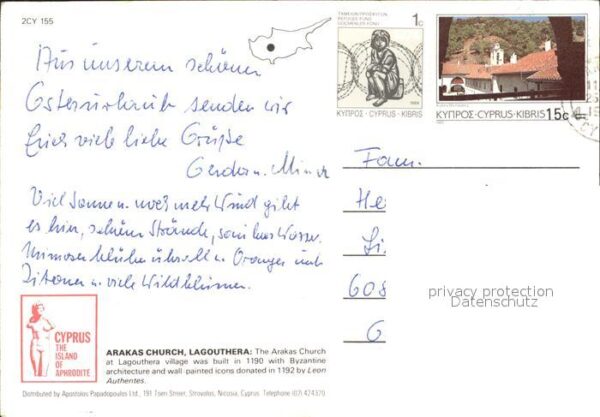 2CY 155
TAMEION ΠΡΟΣΦΥΓΩΝ
REFUGEE FUND
GÖÇMENLER FONU
1c
ΚΥΠΡΟΣ · CYPRUS · KIBRIS
ΚΥΠΡΟΣ · CYPRUS · KIBRIS 15c
Aus unserem schönen
Osterurlaub senden wir
Euch viele liebe Grüße
Gerda u.
Viel Sonne u. noch mehr Wind gibt
es hier, schöne Strände, Wasser.
blühen überall u. Orangen und
Zitronen u. viele Wildblumen.
Fam.
He
608
G
privacy protection
Datenschutz
CYPRUS
THE
ISLAND
OF
APHRODITE
ARAKAS CHURCH, LAGOUTHERA: The Arakas Church
at Lagouthera village was built in 1190 with Byzantine
architecture and wall painted icons donated in 1192 by Leon
Authentes.
Distributed by Apostolos Papadopoulos Ltd., 191 Tseri Street, Strovolos, Nicosia, Cyprus Telephone (02) 424370